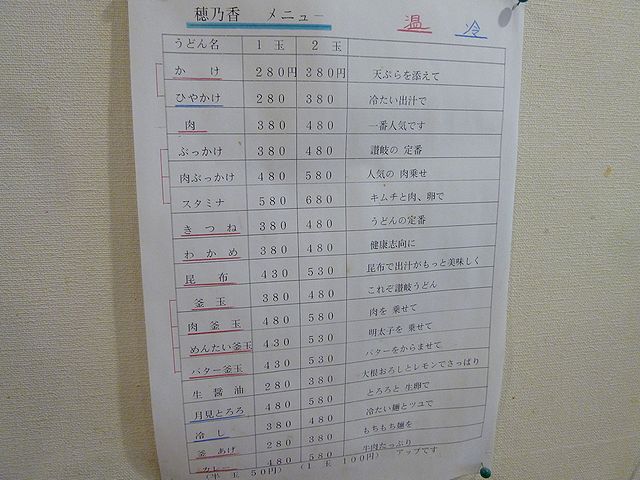 穂乃香　メニュー　温　冷
うどん名　1 玉　2 玉
かけ　280円　380円　天ぷらを添えて
ひやかけ　280　380　冷たい出汁で
肉　380　480　一番人気です
ぶっかけ　380　480　讃岐の 定番
肉ぶっかけ　480　580　人気の 肉乗せ
スタミナ　580　680　キムチと肉、卵で
きつね　380　480　うどんの定番
わかめ　380　480　健康志向に
昆布　430　530　昆布で出汁がもっと美味しく
釜玉　380　480　これぞ讃岐うどん
肉釜玉　480　580　肉を 乗せて
めんたい釜玉　430　530　明太子を 乗せて
バター釜玉　430　530　バターをからませて
生醤油　280　380　大根おろしとレモンでさっぱり
月見とろろ　480　580　とろろと 生卵で
冷し　380　480　冷たい麺とツユで
釜あげ　280　380　もちもち麺を
カレー　480　580　牛肉たっぷり
(半 玉 50円)　(1 玉 100円)　アップです